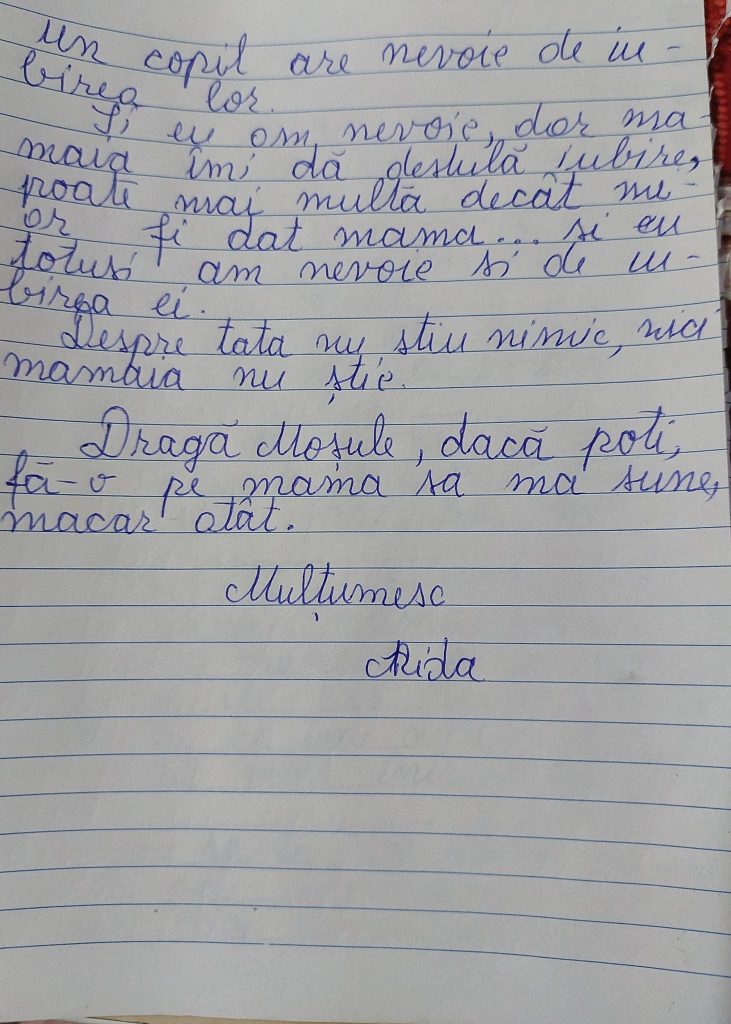 un copil are nevoie de iu-
birea lor.
Și eu am nevoie, dar ma-
maia îmi dă destulă iubire,
poate mai multă decât mi-
ar fi dat mama... si eu
totusi am nevoie si de iu-
birea ei.
Despre tata nu stiu nimic, nici
mamaia nu știe.
Dragă Moșule, dacă poti,
fă-o pe mama sa ma sune,
macar atât.
Mulțumesc